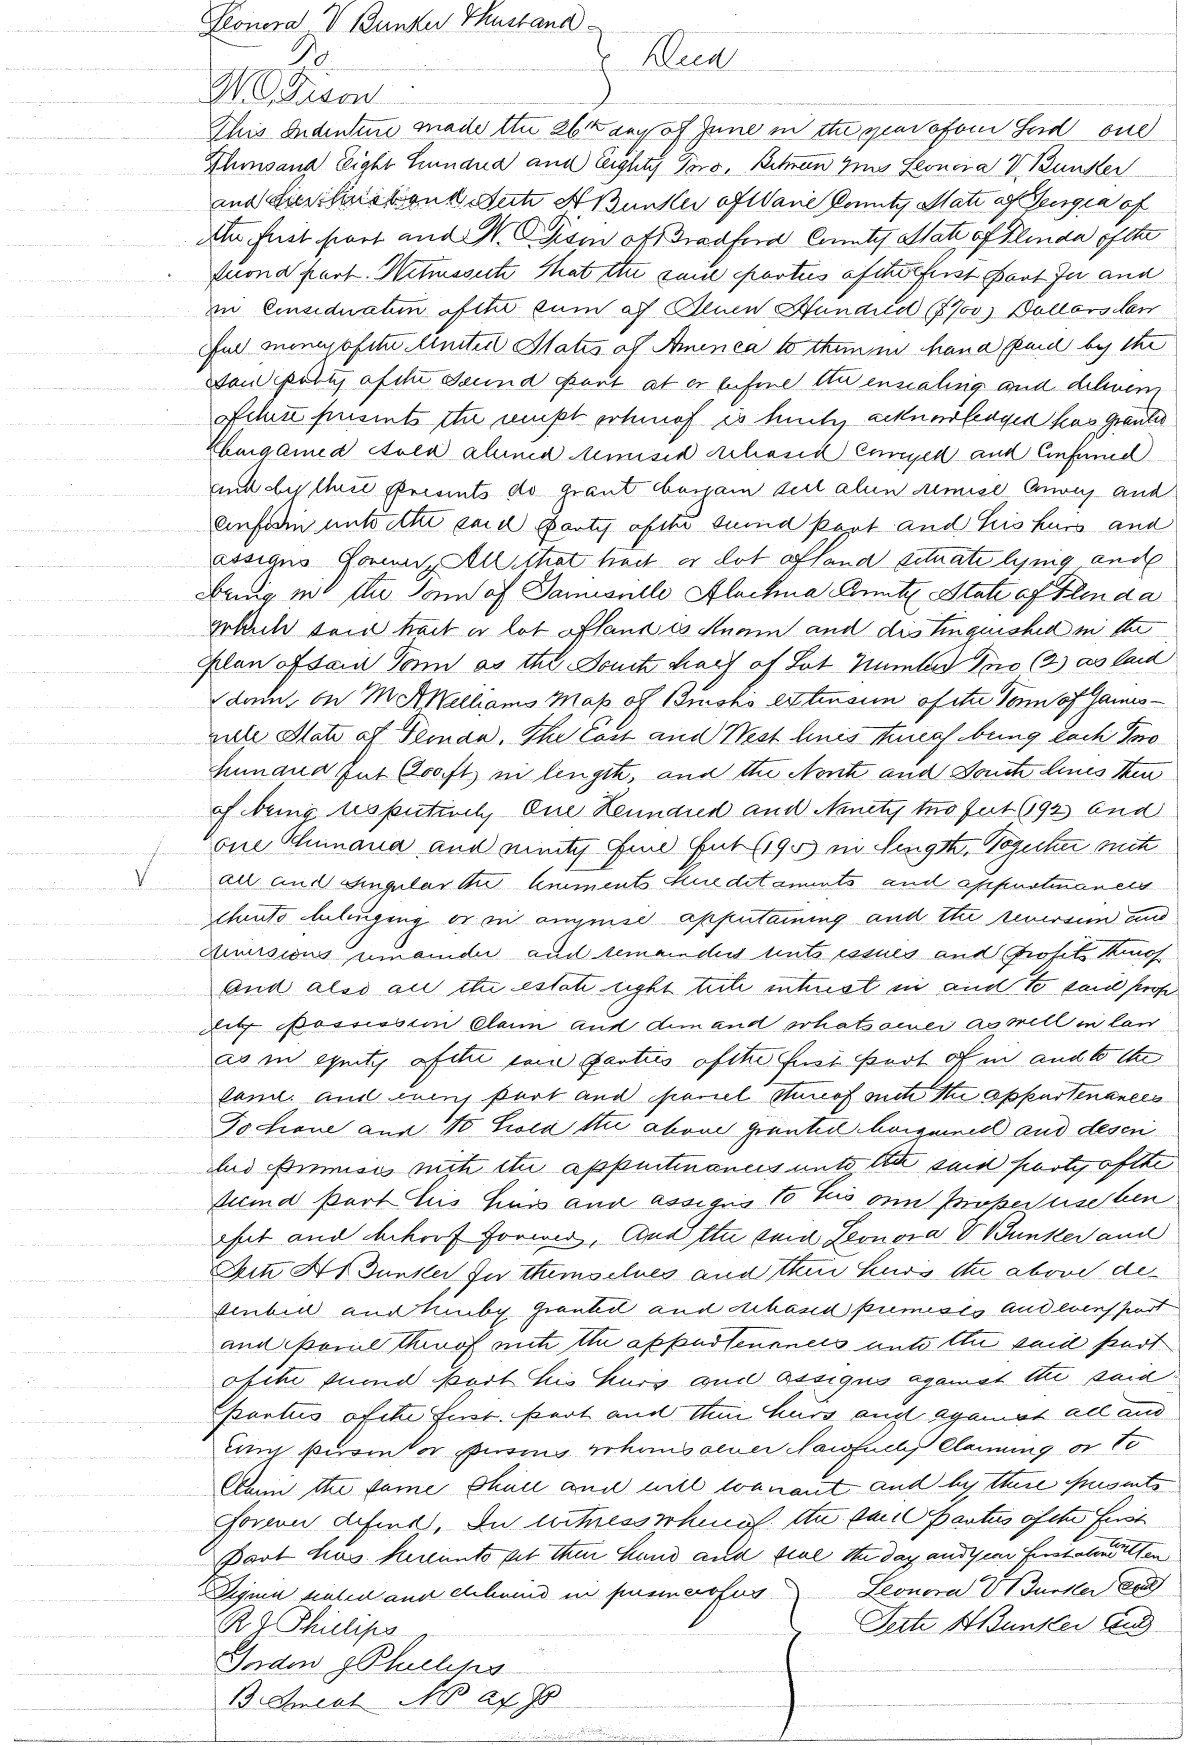 Leonora V Bunker & husband
To
Deed
W. O. Tison
This Indenture made the 26th day of June in the year of our Lord one
Thousand Eight hundred and Eighty Two. Between Mrs Leonora V. Bunker
and her husband Seth H Bunker of Ware County State of Georgia of
the first part and W. O. Tison of Bradford County State of Florida of the
second part. Witnesseth that the said parties of the first part for and
in Consideration of the sum of Seven Hundred ($700) Dollars law
ful money of the United States of America to them in hand paid by the
said party of the second part at or before the ensealing and delivery
of these presents the receipt whereof is hereby acknowledged has granted
bargained sold aliened remised released Conveyed and Confirmed
and by these presents do grant bargain sell alien remise Convey and
Confirm unto the said party of the second part and his heirs and
assigns forever, All that tract or lot of land situate lying and
being in the Town of Gainesville Alachua County State of Florida
which said tract or lot of land is known and distinguished in the
plan of said Town as the South half of Lot Number Two (2) as laid
down, on McAWilliams Map of Brush's extension of the Town of Gaines-
ville State of Florida. The East and West lines thereof being each Two
hundred feet (200 ft) in length, and the North and South lines there
of being respectively One Hundred and Ninety two feet (192) and
one hundred and ninety five feet (195) in length, Together with
all and singular the tenements hereditaments and appurtenances
thereto belonging or in anywise appertaining and the reversion and
reversions remainder and remainders rents issues and profits thereof
and also all the estate right title interest in and to said prop
erty possession Claim and demand whatsoever as well in law
as in equity of the said parties of the first part of in and to the
same. and every part and parcel thereof with the appurtenances
To have and to hold the above granted bargained and descri
bed premises with the appurtenances unto the said party of the
second part his heirs and assigns to his own proper use ben
efit and behoof forever, And the said Leonora V Bunker and
Seth H Bunker for themselves and their heirs the above de-
scribed and hereby granted and released premises and every part
and parcel thereof with the appurtenances unto the said part
of the second part his heirs and assigns against the said
parties of the first part and their heirs and against all and
every person or persons whomsoever lawfully Claiming or to
Claim the same shall and will warrant and by these presents
forever defend, In witness whereof the said parties of the first
part has hereunto set their hand and seal the day and year first above written
Signed sealed and delivered in presence of us Leonora V Bunker seal
R J Phillips Seth H Bunker seal
Gordon J Phillips
B. Sweat NP